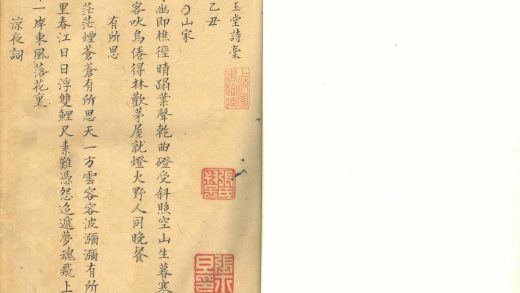 玉堂詩稾
乙丑
〇山家
幽即樵徑晴蹋葉聲乾曲磴受斜照空山生暮寒
客吠烏倦得林歡茅屋就燈火野人同晚餐
有所思
茫茫煙蒼蒼有所思天一方雲容容波瀰瀰有所
里春江日日浮雙鯉尺素難憑怨迢遞夢魂飛上
一岸東風落花裏
涼夜詞